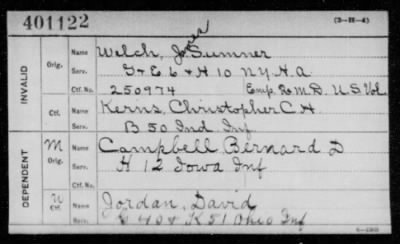 401122 (3-H-4)
INVALID
Orig. Name Welch, James Sumner
Serv. G & E. 6 & H 10 N.Y.H.A
Ctf. No. 250974 Emp. Q.M.D. U.S Vol.
Ctf. Name Kerns, Christopher C H
Serv. B 50 Ind Inf
DEPENDENT
M Orig. Name Campbell Bernard D
Serv. H 12 Iowa Inf
Ctf. No.
Ctf. Name Jordan, David
Serv. C 40 & K 51 Ohio Inf